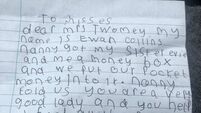 To Kisses
dear mrs Twomey my
name is Ewan Collins
nanny got my sister evie
and me a money box
and we put our Pocket
money Into it. nanny
told us you are a very
good lady and you help